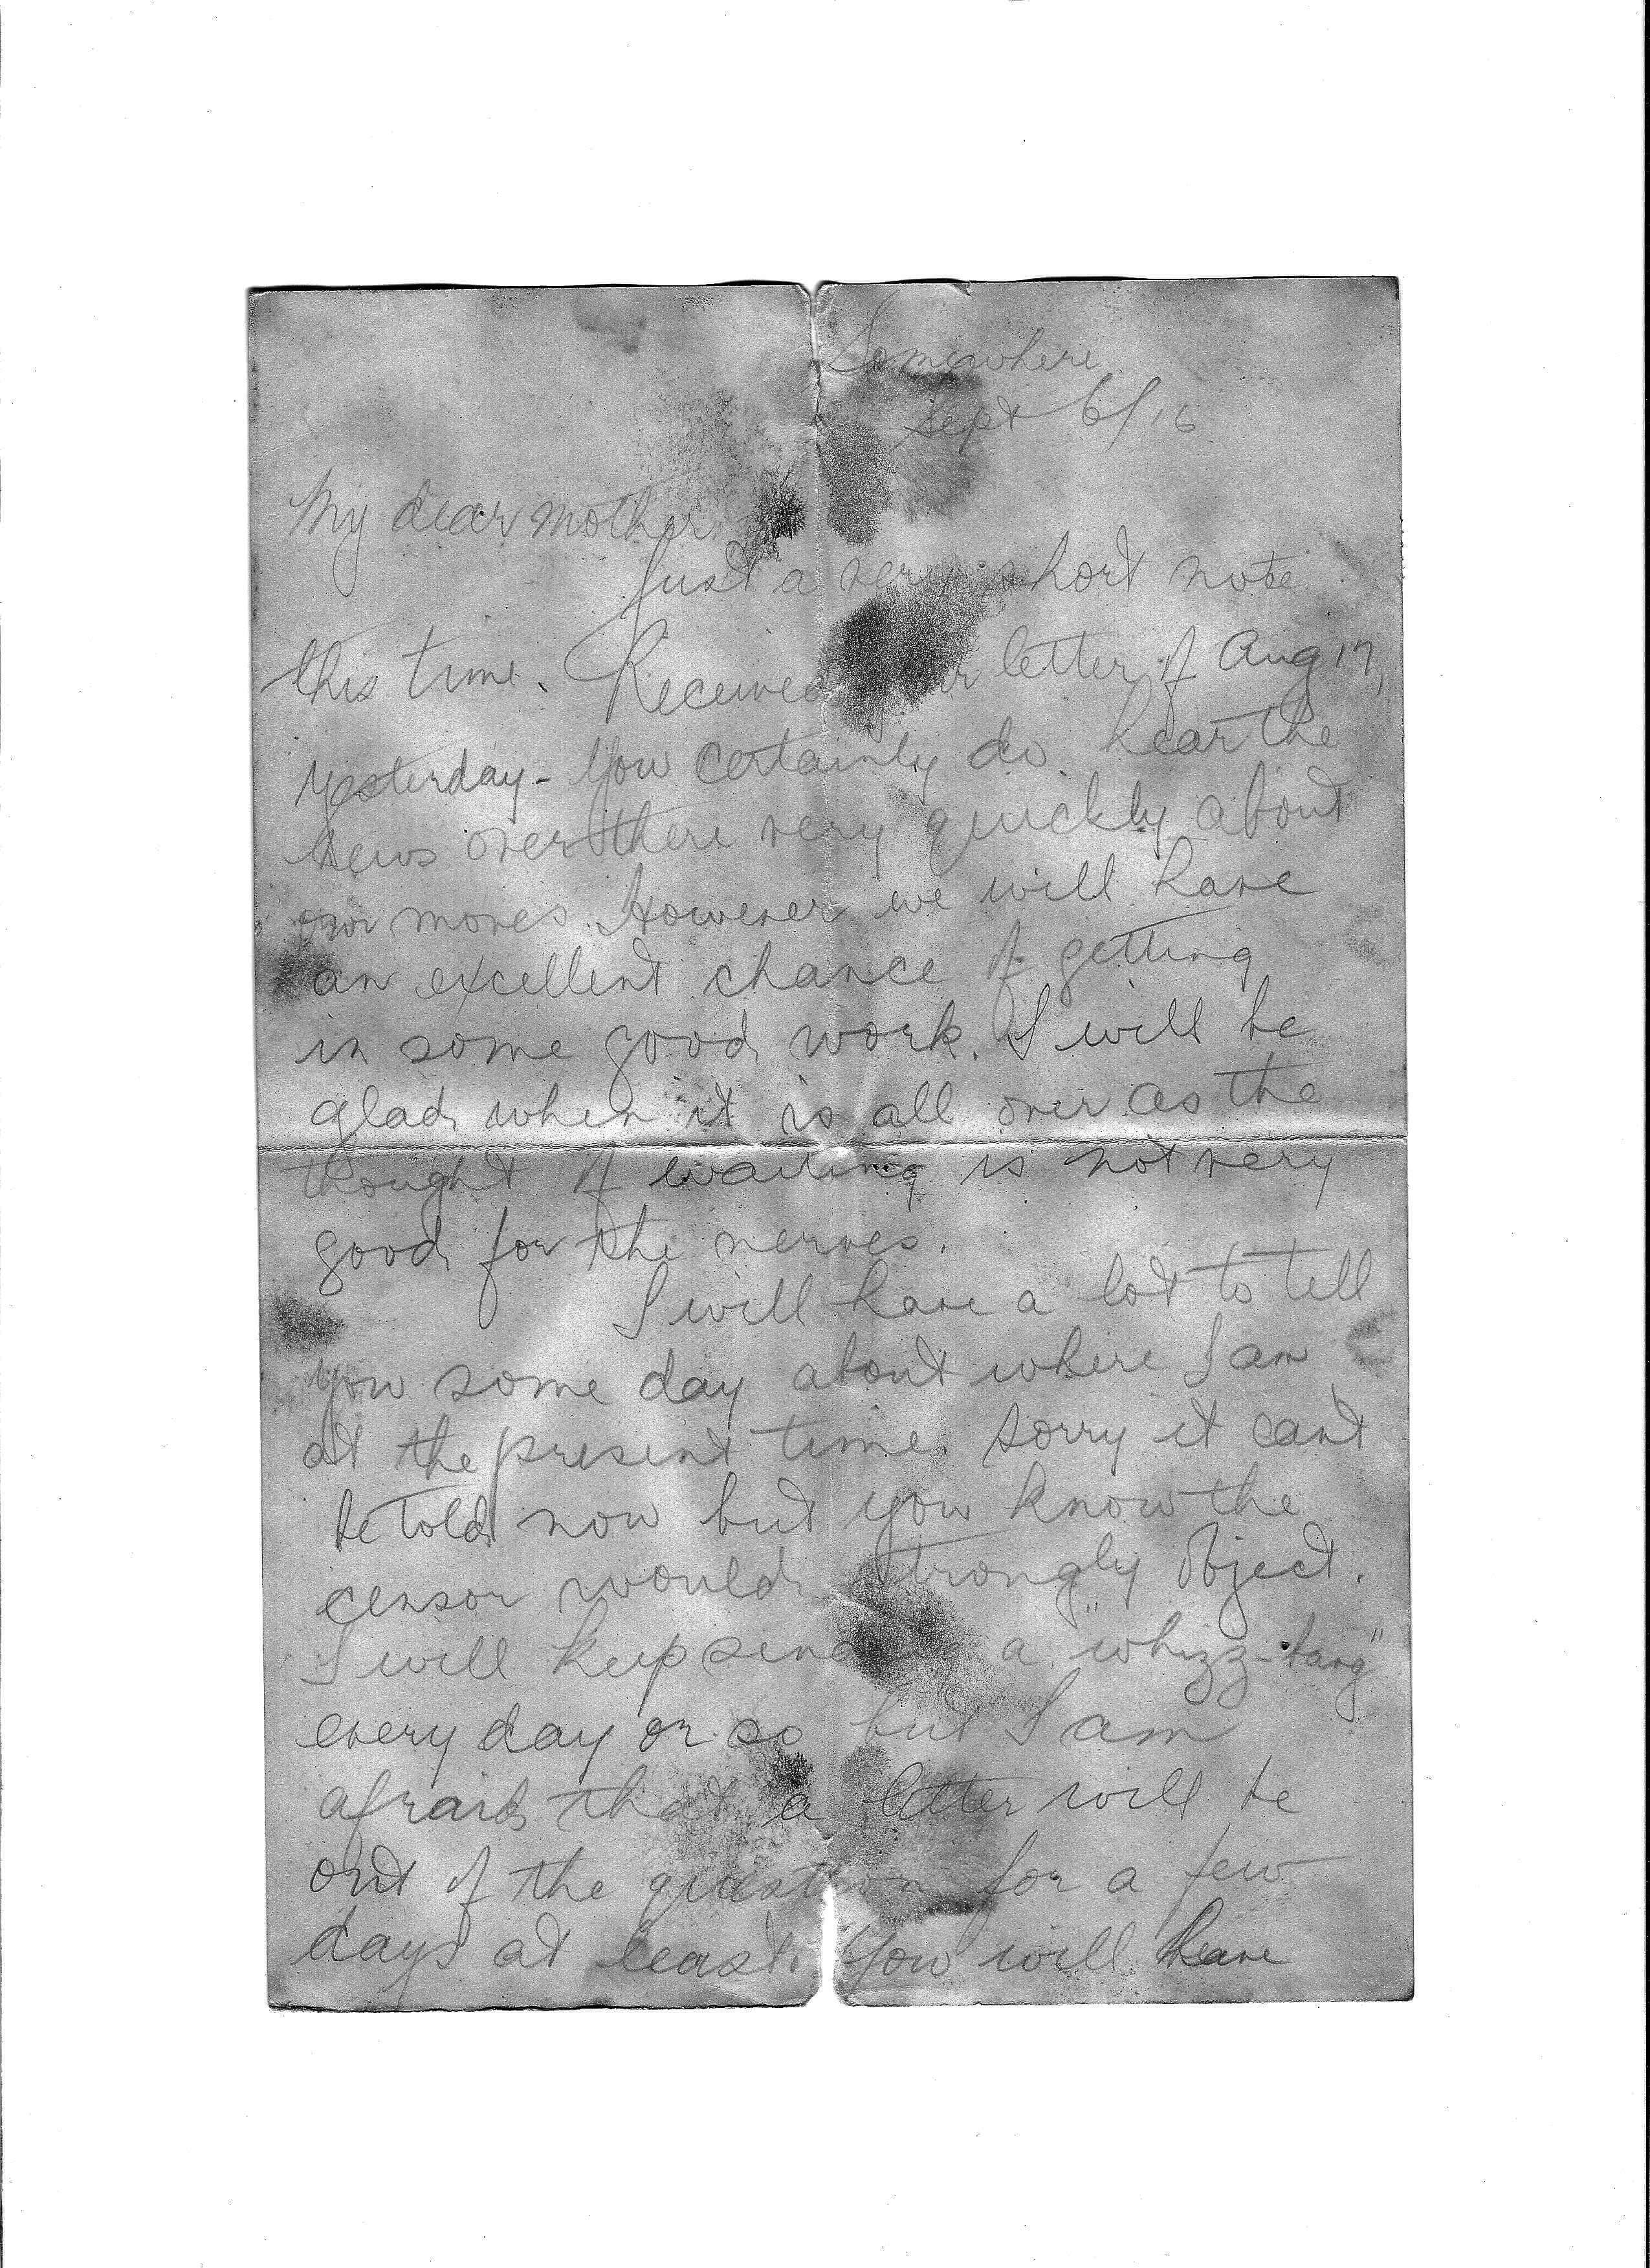 Somewhere
Sept 6/16
My dear mother
Just a very short note
this time. Received your letter of Aug 17,
yesterday - You certainly do hear the
news over there very quickly about
our moves. However we will have
an excellent chance of getting
in some good work. I will be
glad when it is all over as the
thought of waiting is not very
good for the nerves.
I will have a lot to tell
you some day about where I am
at the present time. Sorry it cant
be told now but you know the
censor would strongly object.
I will keep sending a "whizz-bang"
every day or so but I am
afraid that a letter will be
out of the question for a few
days at least. You will have